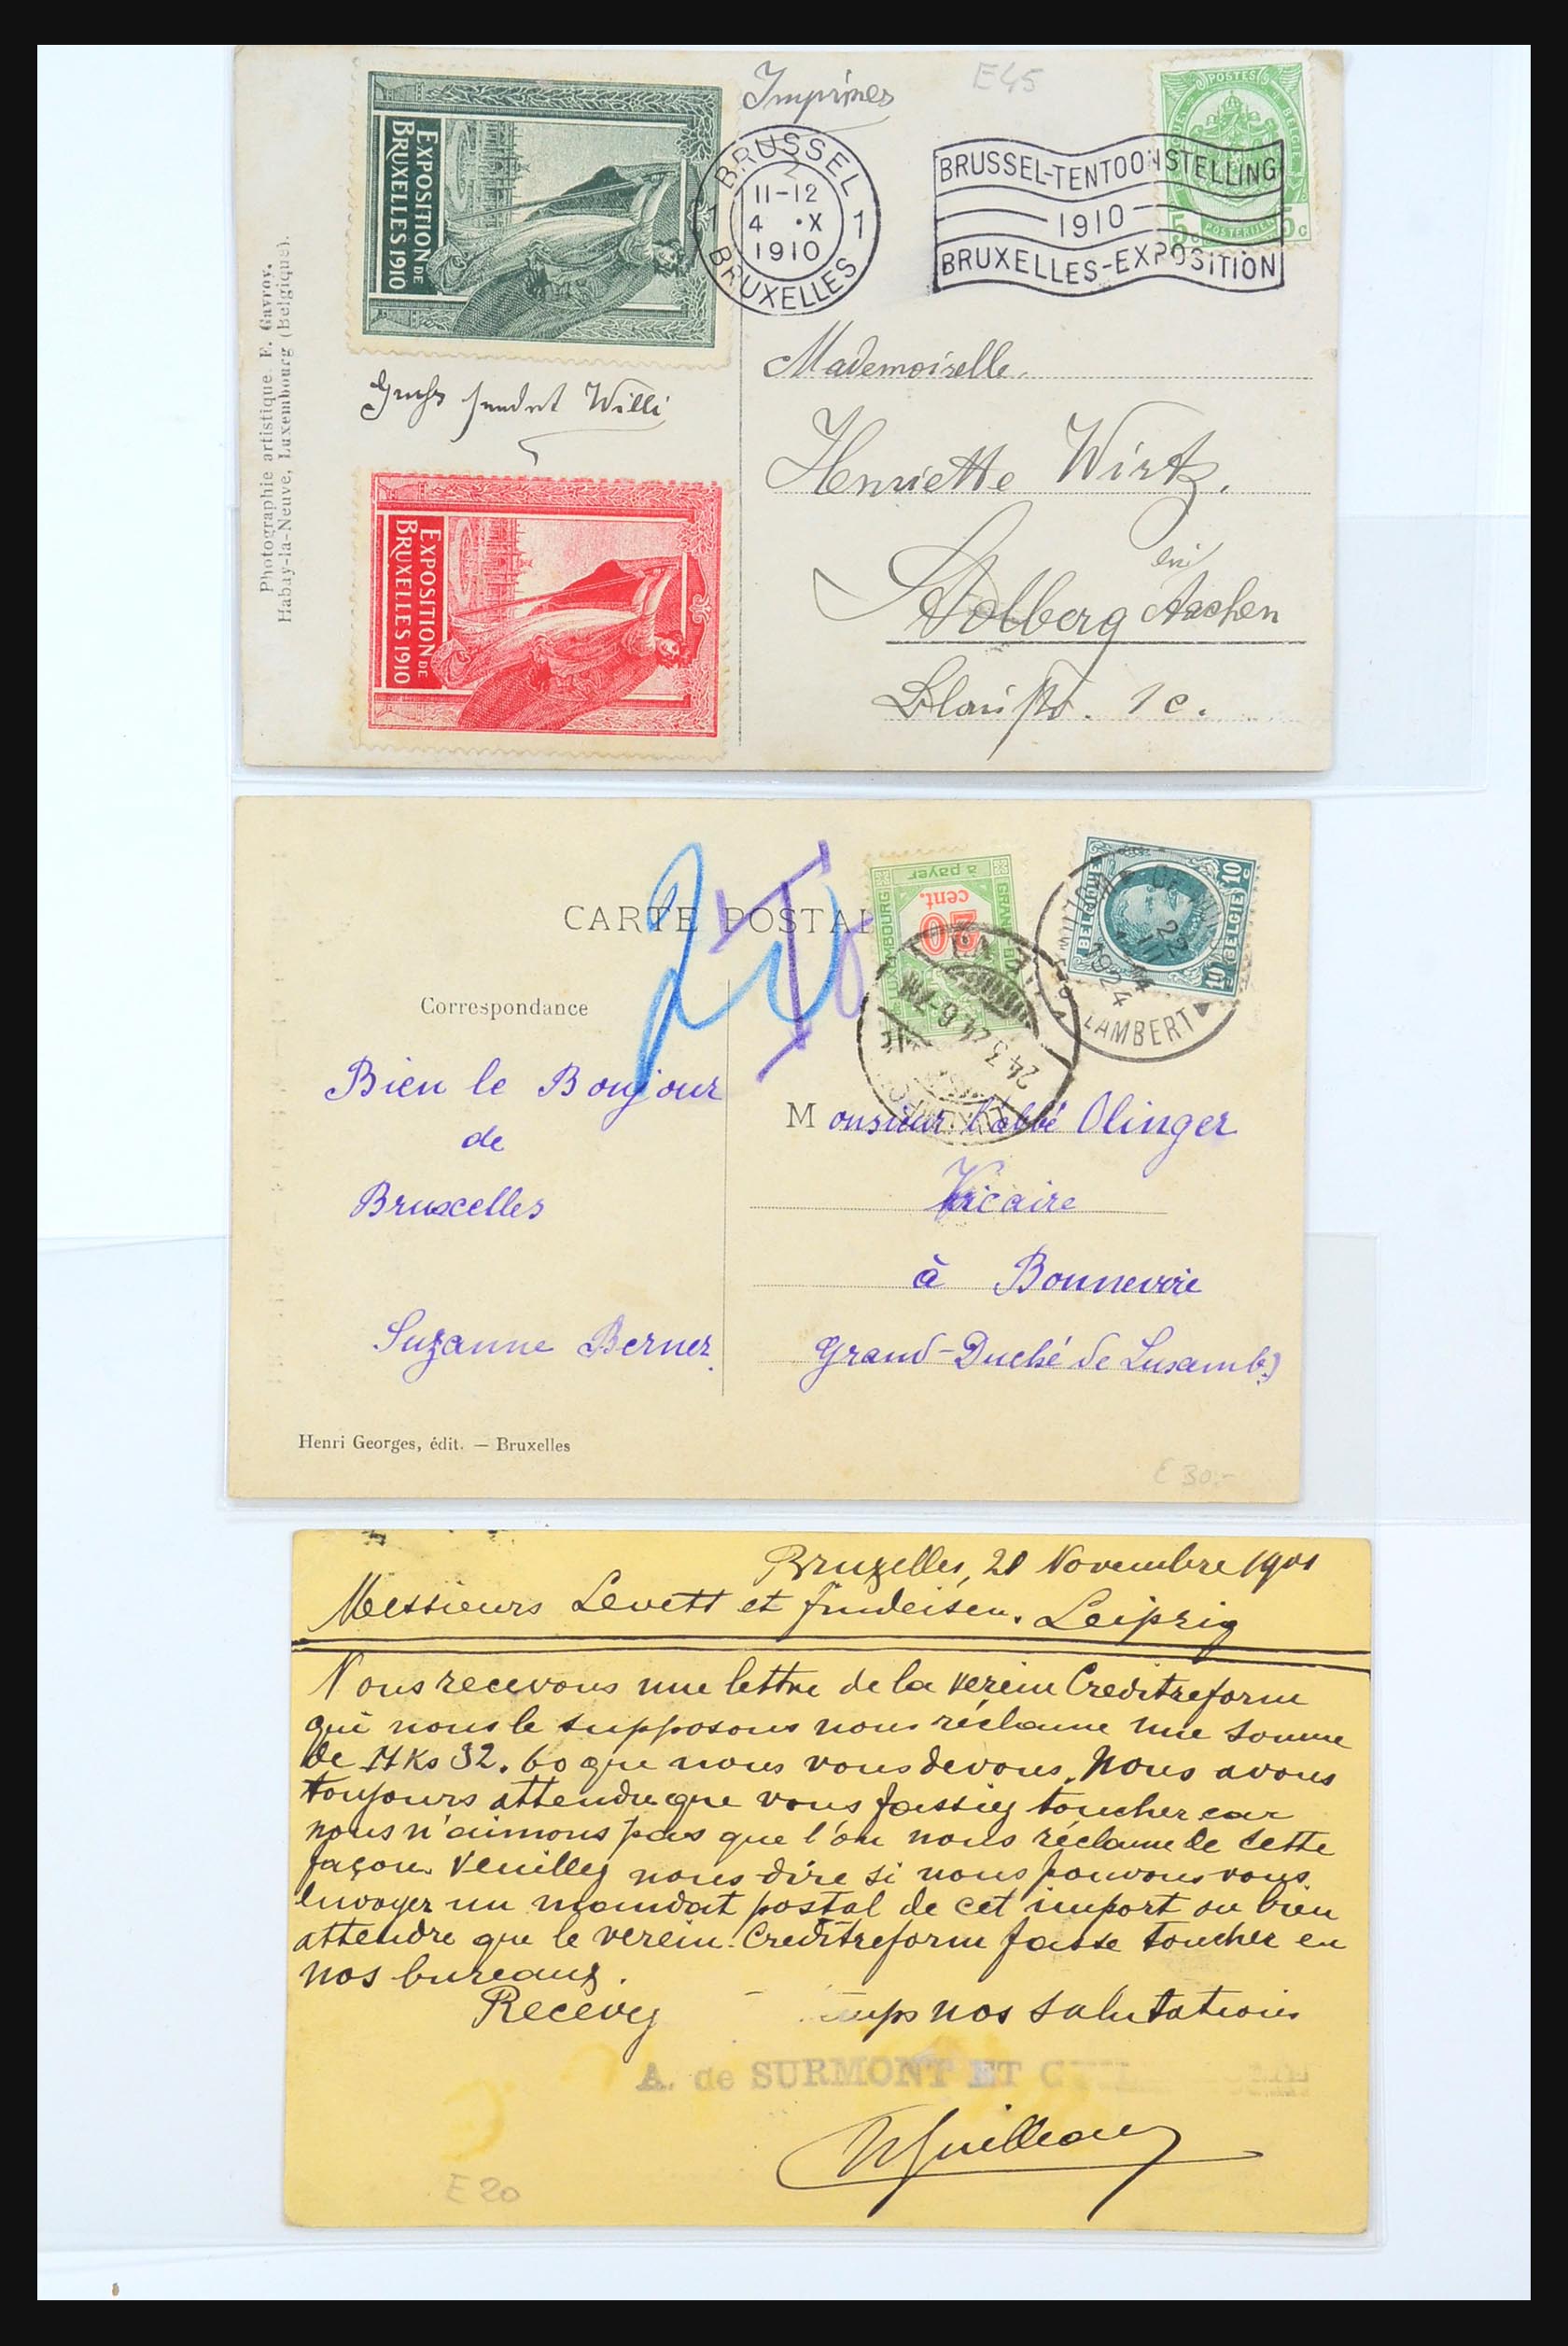 Imprimés
E45
POSTES
BELGIE
5c
5c
POSTERIJEN
EXPOSITION DE
BRUXELLES 1910
BRUSSEL
11-12
4 •X
1910
1 1
BRUXELLES
BRUSSEL-TENTOONSTELLING
1910
BRUXELLES-EXPOSITION
Photographie artistique. E. Gavroy.
Habay-la-Neuve, Luxembourg (Belgique).
Willi
EXPOSITION DE
BRUXELLES 1910
Mademoiselle.
Henriette Wirtz.
Stolberg bei Aachen
1c.
CARTE POSTAL
T
à payer
20
cent.
LUXEMBOURG
BELGIQUE
BELGIE
10c
10c
22
III
1924
LAMBERT
24.3.24.6-7
Correspondance
Bien le Bonjour
de
Bruxelles
Suzanne Berner.
Monsieur l'abbé Olinger
Vicaire
à Bonnevoie
Grand-Duché de Luxemb.)
Henri Georges, édit. — Bruxelles
E 30.-
Bruxelles, 21 Novembre 1901
Messieurs Levett et Findeisen. Leipzig
Nous recevons une lettre de la Verein Creditreform
qui nous le supposons nous réclame une somme
de Mks 32.60 que nous vous devons. Nous avons
toujours attendu que vous fassiez toucher car
nous n'aimons pas que l'on nous réclame de cette
façon. Veuillez nous dire si nous pouvons vous
envoyer un mandat postal de cet import ou bien
attendre que le Verein Creditreform fasse toucher en
nos bureaux.
Recevez nos salutations
A. de SURMONT ET
E 20